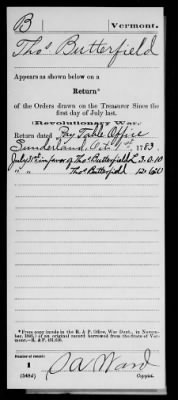 B | Vermont.
Thos Butterfield
Appears as shown below on a
Return*
of the Orders drawn on the Treasurer Since the
first day of July last.
(Revolutionary War.)
Return dated Pay Table Office
Sunderland, Oct. 1st, 1783
July 31st in favor of Thos Butterfield £ 3.0.10
" " Thos Butterfield 12.6.0
*From copy made in the R. & P. Office, War Dept., in Novem-
ber, of an original record borrowed from the State of Ver-
mont.—R. & P.
Number of roll:
1
S A Ward
(548d) Copyist.